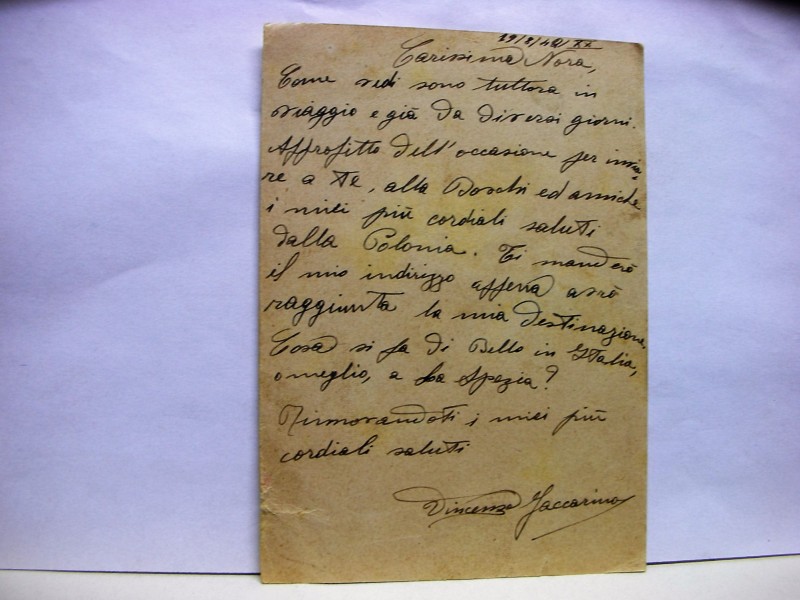 29/8/42/XX
Carissima Nora,
Come vedi sono tuttora in
viaggio e già da diversi giorni.
Approfitto dell'occasione per invia,
re a te, alla Boschi ed amiche
i miei più cordiali saluti
dalla Polonia. Ti manderò
il mio indirizzo appena avrò
raggiunta la mia destinazione.
Cosa si fa di Bello in Italia,
o meglio, a La Spezia?
Rinnovandoti i miei più
cordiali saluti
Vincenzo Jaccarino